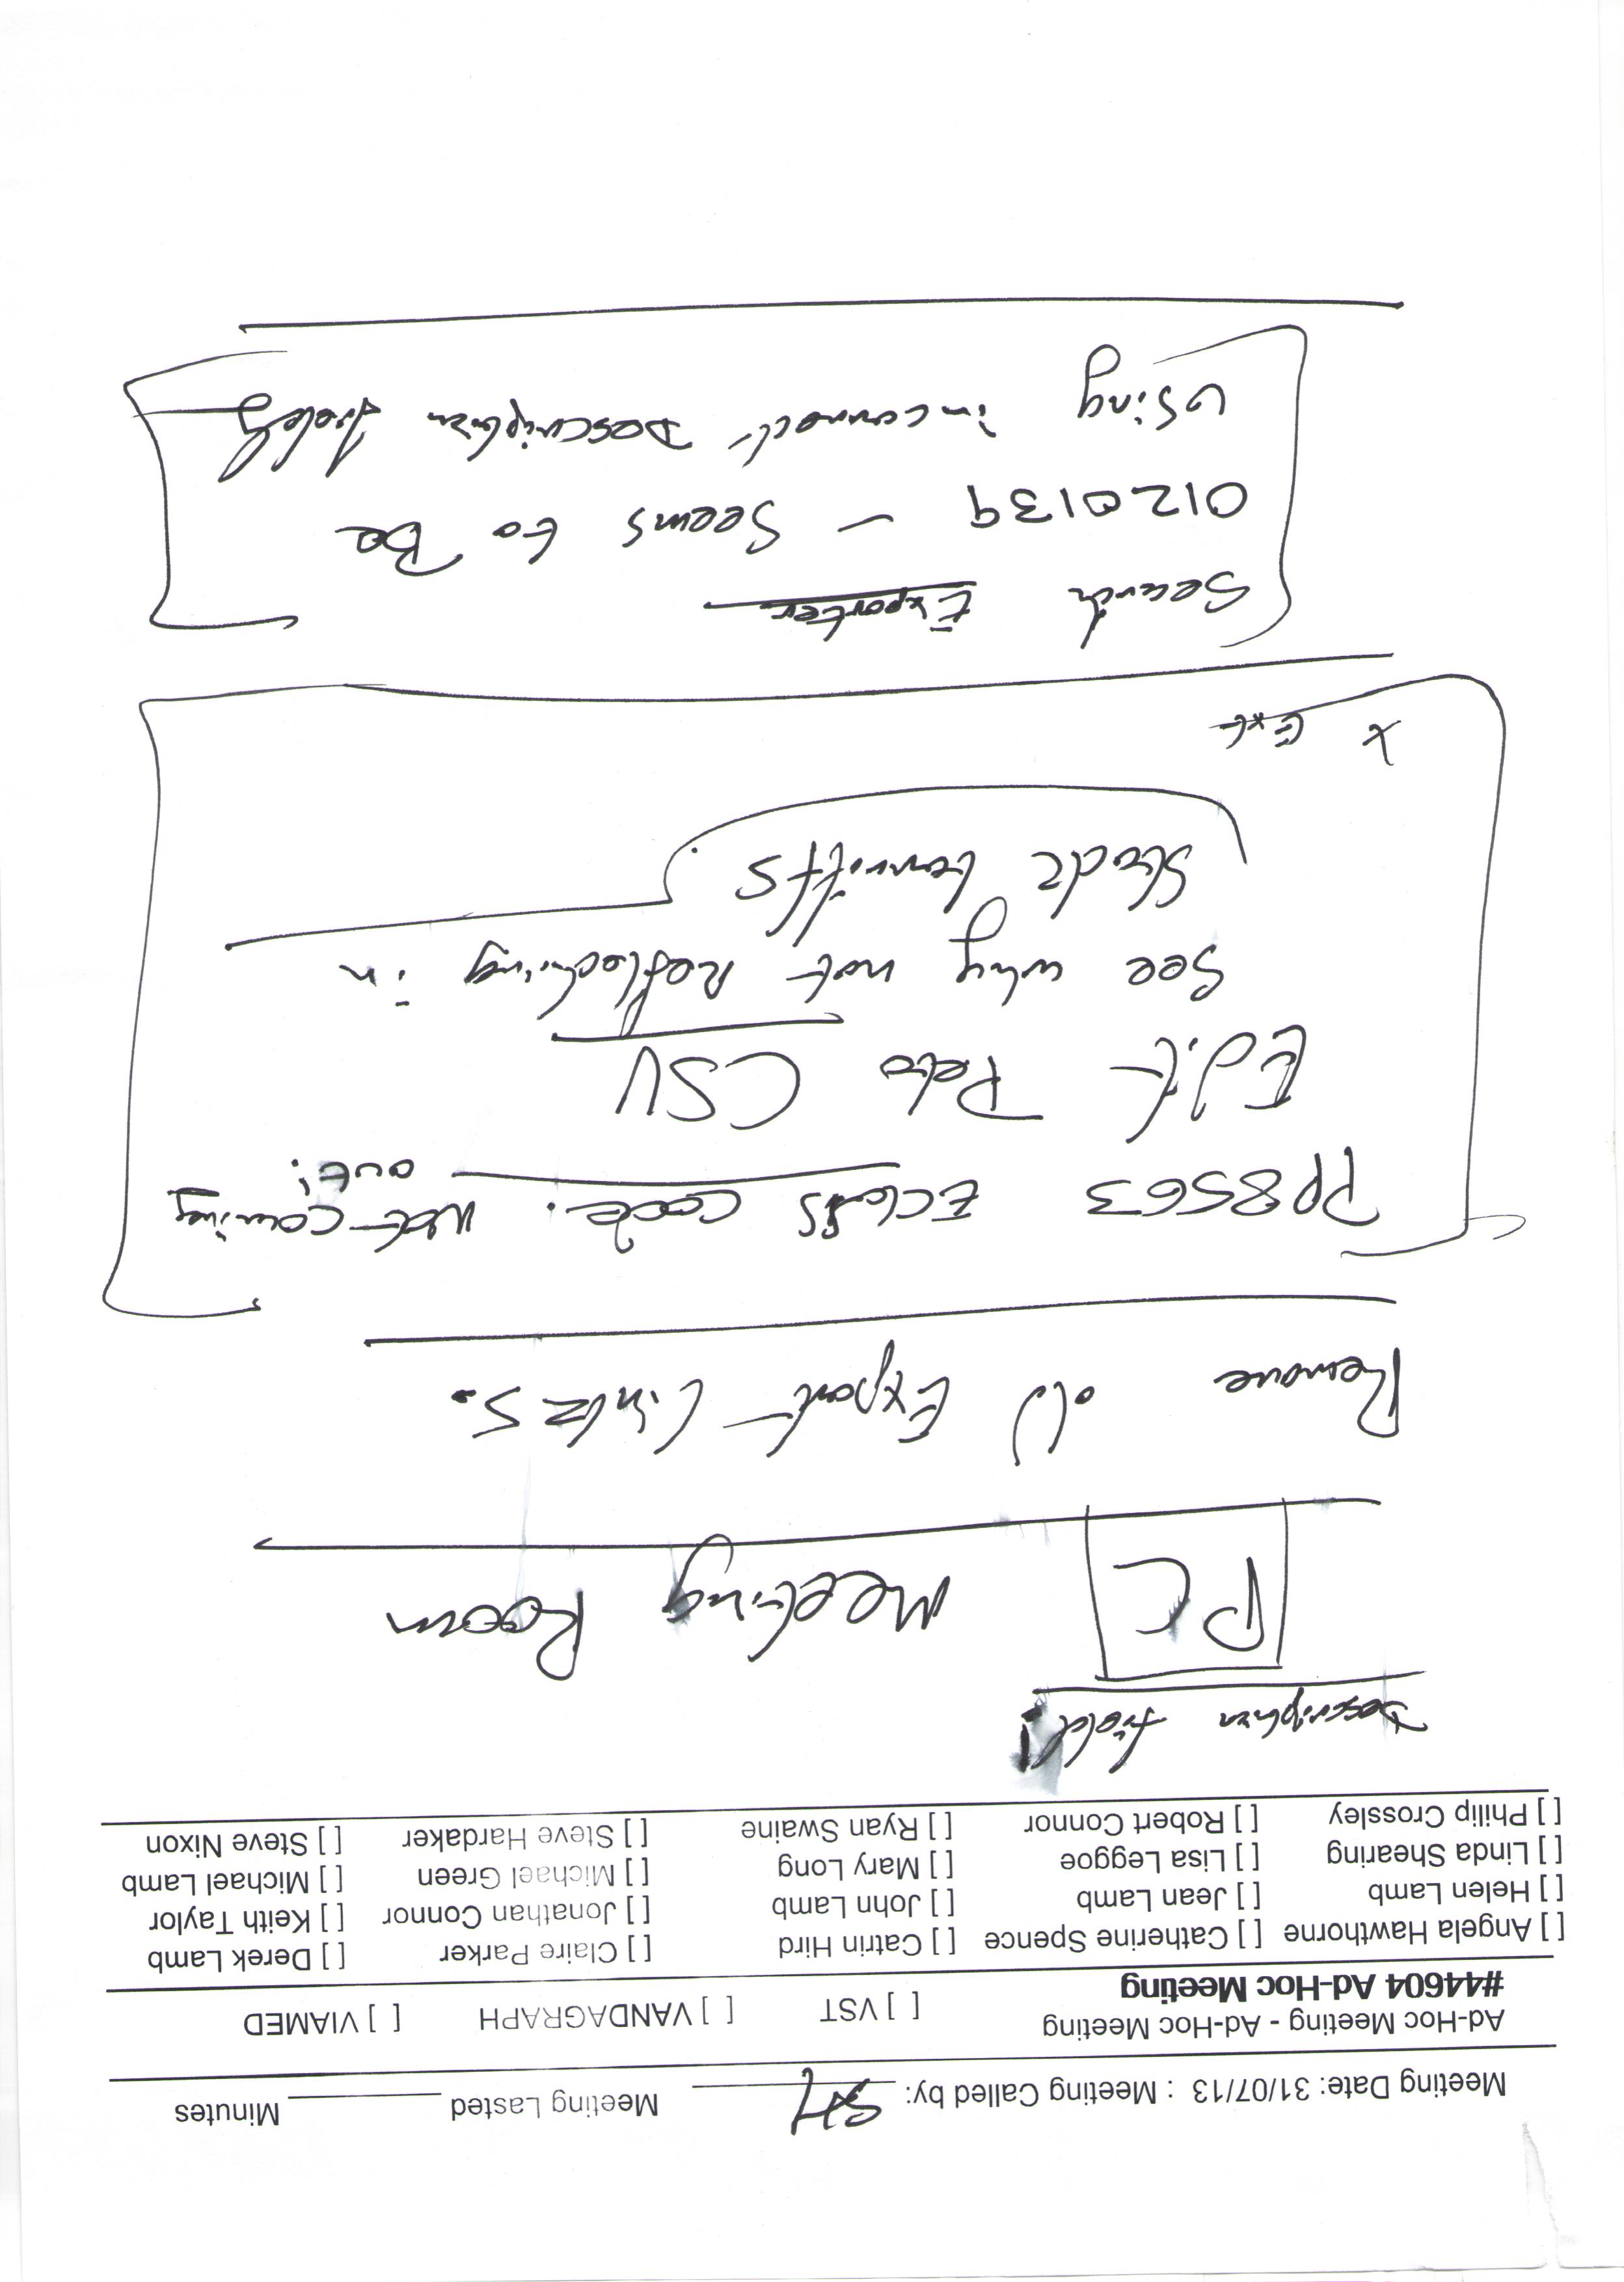 Meeting Date: 31/07/13 : Meeting Called by: SH Meeting Lasted ________ Minutes
Ad-Hoc Meeting - Ad-Hoc Meeting
#44604 Ad-Hoc Meeting [ ] VST [ ] VANDAGRAPH [ ] VIAMED
[ ] Angela Hawthorne [ ] Catherine Spence [ ] Catrin Hird [ ] Claire Parker [ ] Derek Lamb
[ ] Helen Lamb [ ] Jean Lamb [ ] John Lamb [ ] Jonathan Connor [ ] Keith Taylor
[ ] Linda Shearing [ ] Lisa Leggoe [ ] Mary Long [ ] Michael Green [ ] Michael Lamb
[ ] Philip Crossley [ ] Robert Connor [ ] Ryan Swaine [ ] Steve Hardaker [ ] Steve Nixon
Description field
PC Meeting Room
Remove old Export Links.
PP8563 Eclass code. Not coming
out.
Edit CSV
See why not Reflecting in
tarriffs
x Ext
Search Exporter
0120139 - Seems to Be
Using incorrect Description field